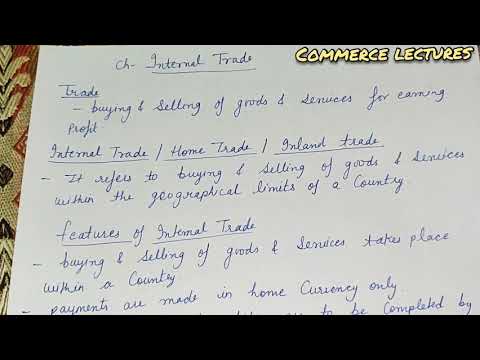 COMMERCE LECTURES
Ch- Internal Trade
Trade
- buying & selling of goods & services for earning
Profit
Internal Trade / Home Trade / Inland trade
- It refers to buying & selling of goods & services
within the geographical limits of a Country.
features of Internal Trade
- buying & selling of goods & services takes place
within a Country
- payments are made in home Currency only.
to be completed by